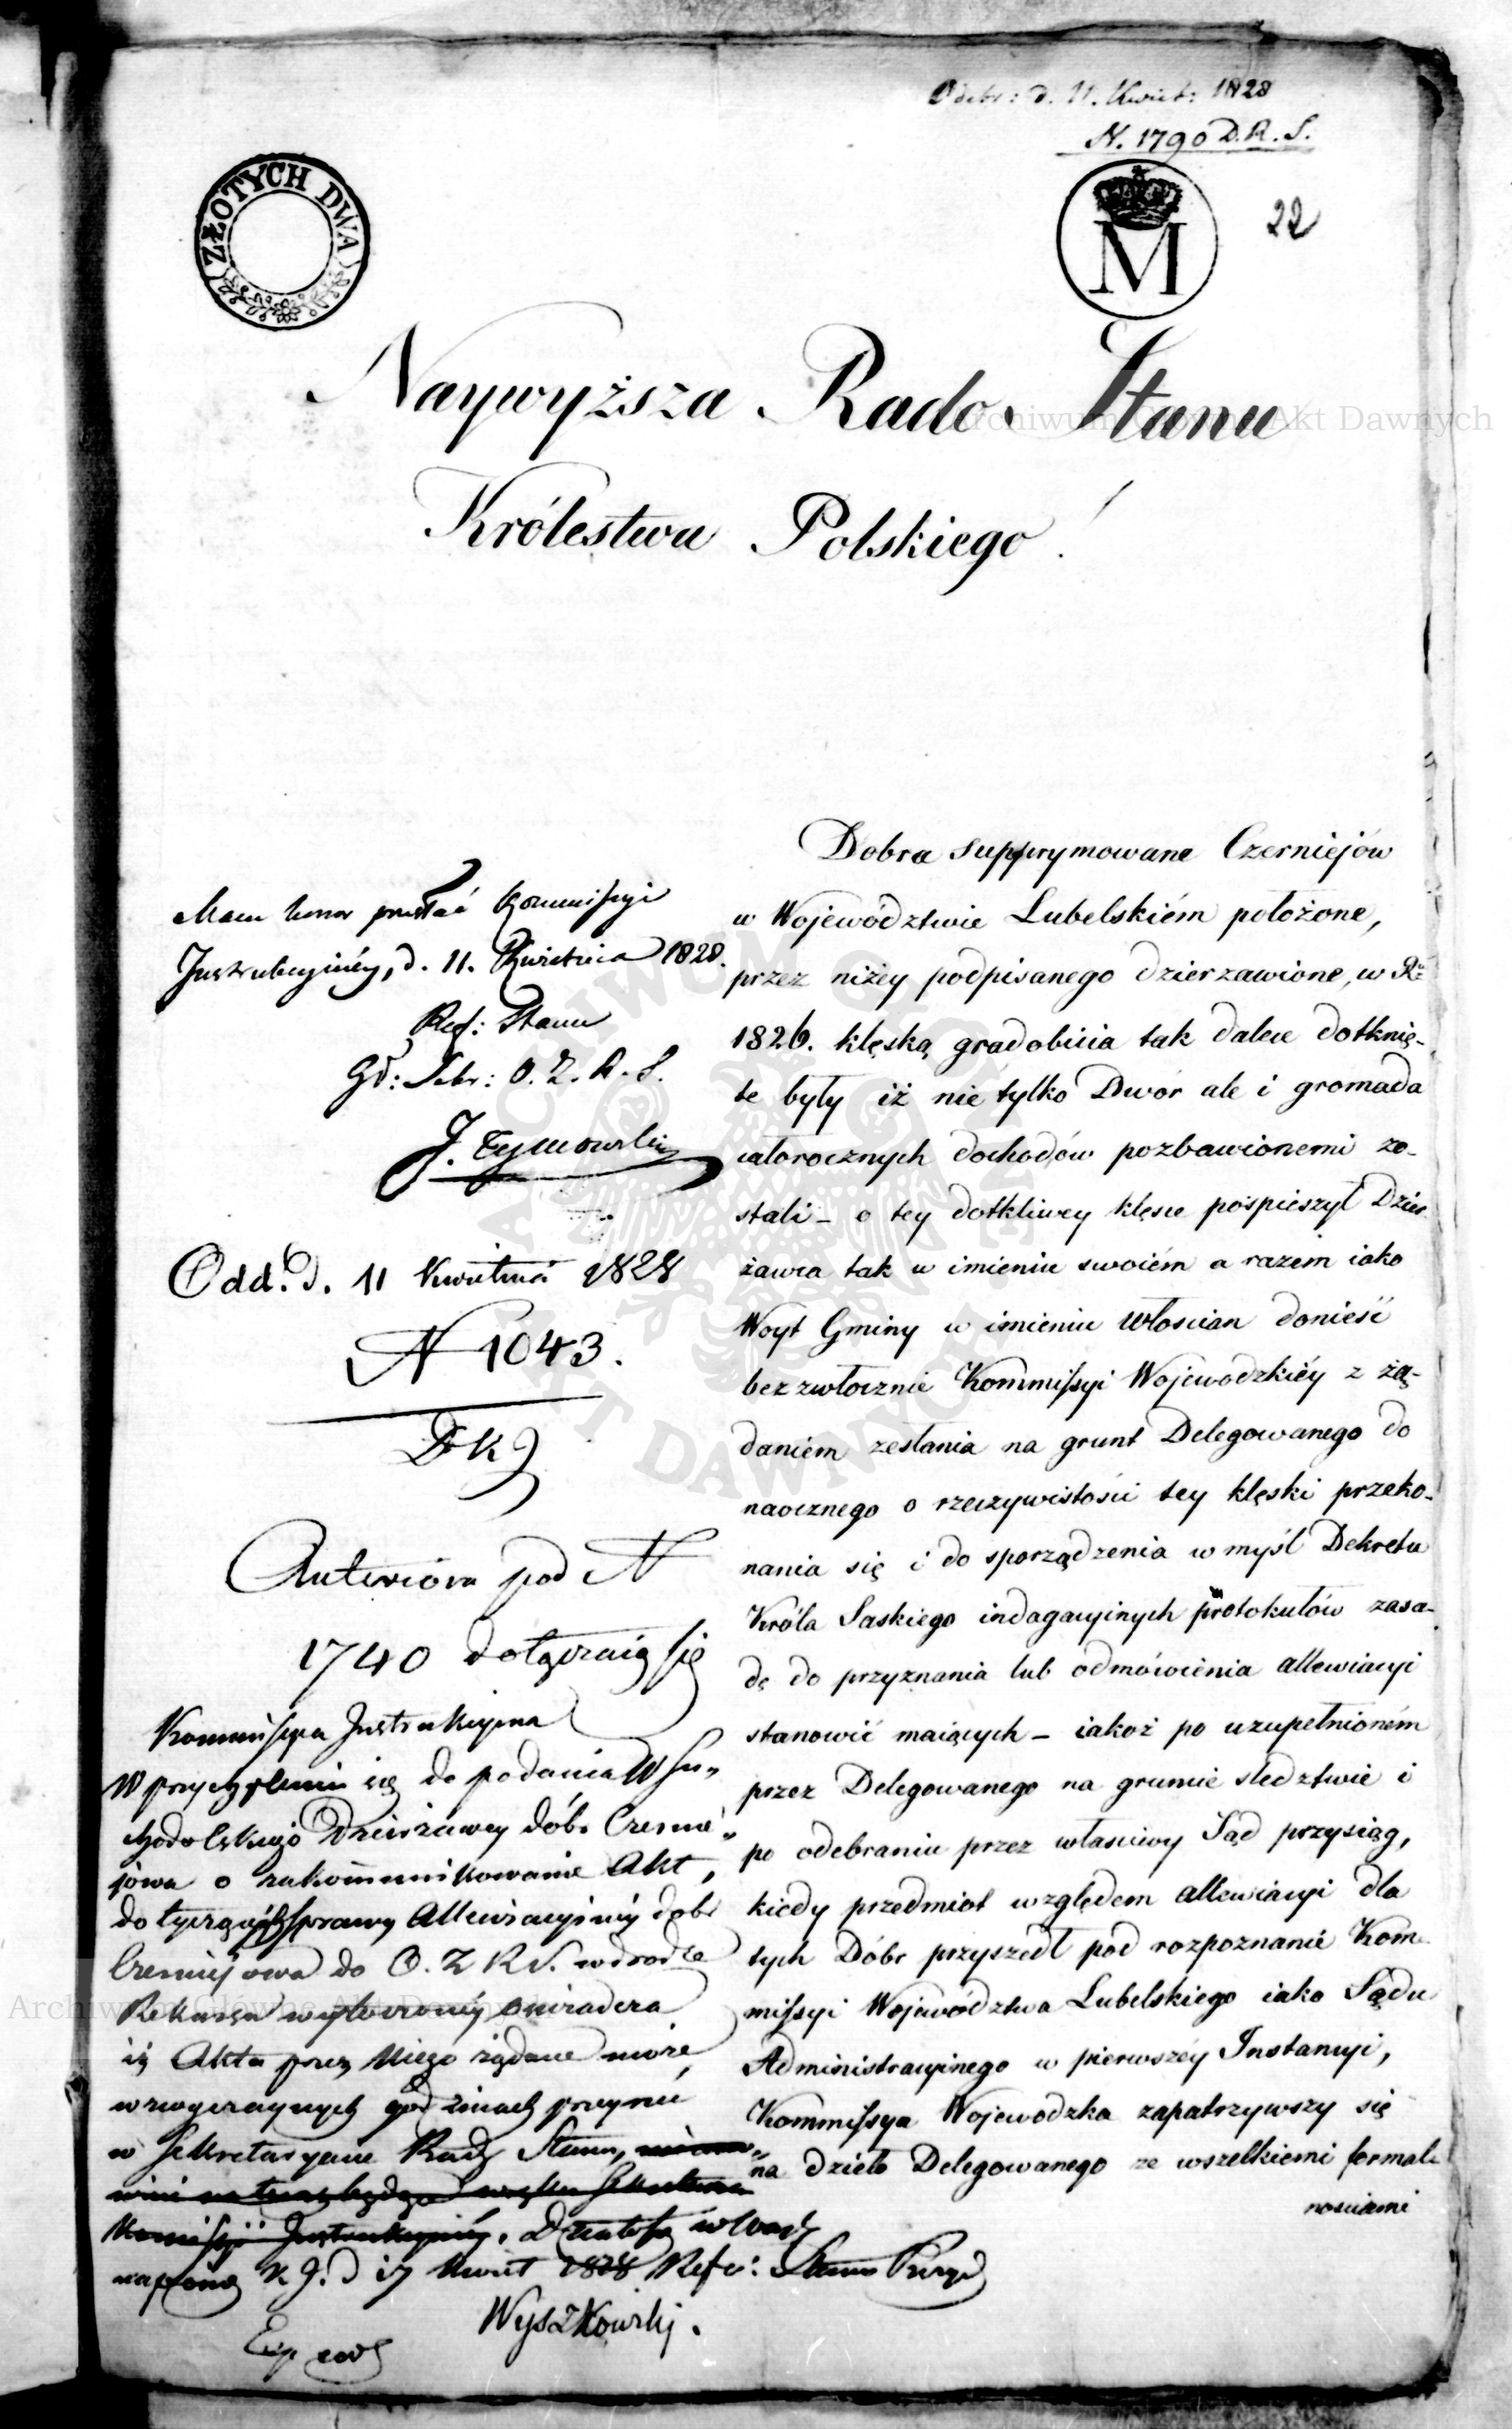 Odebr: d. 11. Kwiet: 1828
N. 1790 D.R.S.
ZŁOTYCH DWA
M
22
Naywyższa Rado Stanu
Królestwa Polskiego!
Mam honor przesłać Kommissyi
Instrukcyinéy, d. 11. Kwietnia 1828.
Ref: Stanu
Gł: Sekr: O. Z. R. S.
J. Tymowski
Odd. d. 11 Kwietnia 1828
N 1043.
Anteriora pod N
1740 dołączaią się
Kommissya Instrukcyina
W przychyleniu się do podania W Su-
chodolskiego Dzierzawcy dóbr Czernie-
jowa o zakommunikowanie Akt,
dotyczących sprawy Allewiacyiney dobr
Czerniejowa do O. Z R S. w drodze
Rekursu wytoczonéy oświadcza
iż Akta przez Niego żądane może
w zwyczaynych godzinach przeyrzeć
w Sekretaryacie Rady Stanu,
d 17 Kwiet 1828 Refer: Stanu
Wyszkowski.
Dobra supprymowane Czerniejów
w Województwie Lubelskiém położone,
przez niżey podpisanego dzierzawione, w R.
1826. klęską gradobicia tak dalece dotknię-
te były iż nie tylko Dwór ale i gromada
całorocznych dochodów pozbawionemi zo-
stali – o tey dotkliwey klęsce pośpieszył Dzier
żawca tak w imieniu swoiém a razem iako
Woyt Gminy w imieniu Włoscian donieść
bezzwłocznie Kommissyi Wojewodzkiéy z żą-
daniem zesłania na grunt Delegowanego do
naocznego o rzeczywistości tey klęski przeko-
nania się i do sporządzenia w myśl Dekretu
Króla Saskiego indagacyinych protokułów zasa-
dę do przyznania lub odmówienia allewiacyi
stanowić maiących – iakoż po uzupełnioném
przez Delegowanego na gruncie sledztwie i
po odebraniu przez właściwy Sąd przysiąg,
kiedy przedmiot względem allewiacyi dla
tych Dóbr przyszedł pod rozpoznanie Kom-
missyi Województwa Lubelskiego iako Sądu
Administracyinego w pierwszéy Instancyi,
Kommissya Wojewodzka zapatrzywszy się
na dzieło Delegowanego ze wszelkiemi formal-
nosciami
Archiwum Główne Akt Dawnych